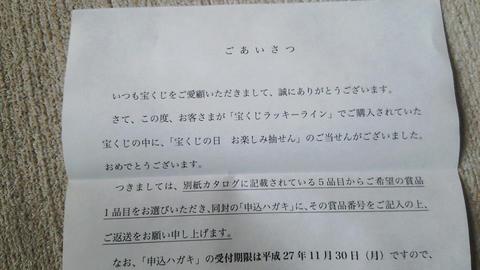 ごあいさつ
いつも宝くじをご愛顧いただきまして、誠にありがとうございます。
さて、この度、お客さまが「宝くじラッキーライン」でご購入されていた
宝くじの中に、「宝くじの日　お楽しみ抽せん」のご当せんがございました。
おめでとうございます。
つきましては、別紙カタログに記載されている５品目からご希望の賞品
１品目をお選びいただき、同封の「申込ハガキ」に、その賞品番号をご記入の上、
ご返送をお願い申し上げます。
なお、「申込ハガキ」の受付期限は平成27年11月30日（月）ですので、